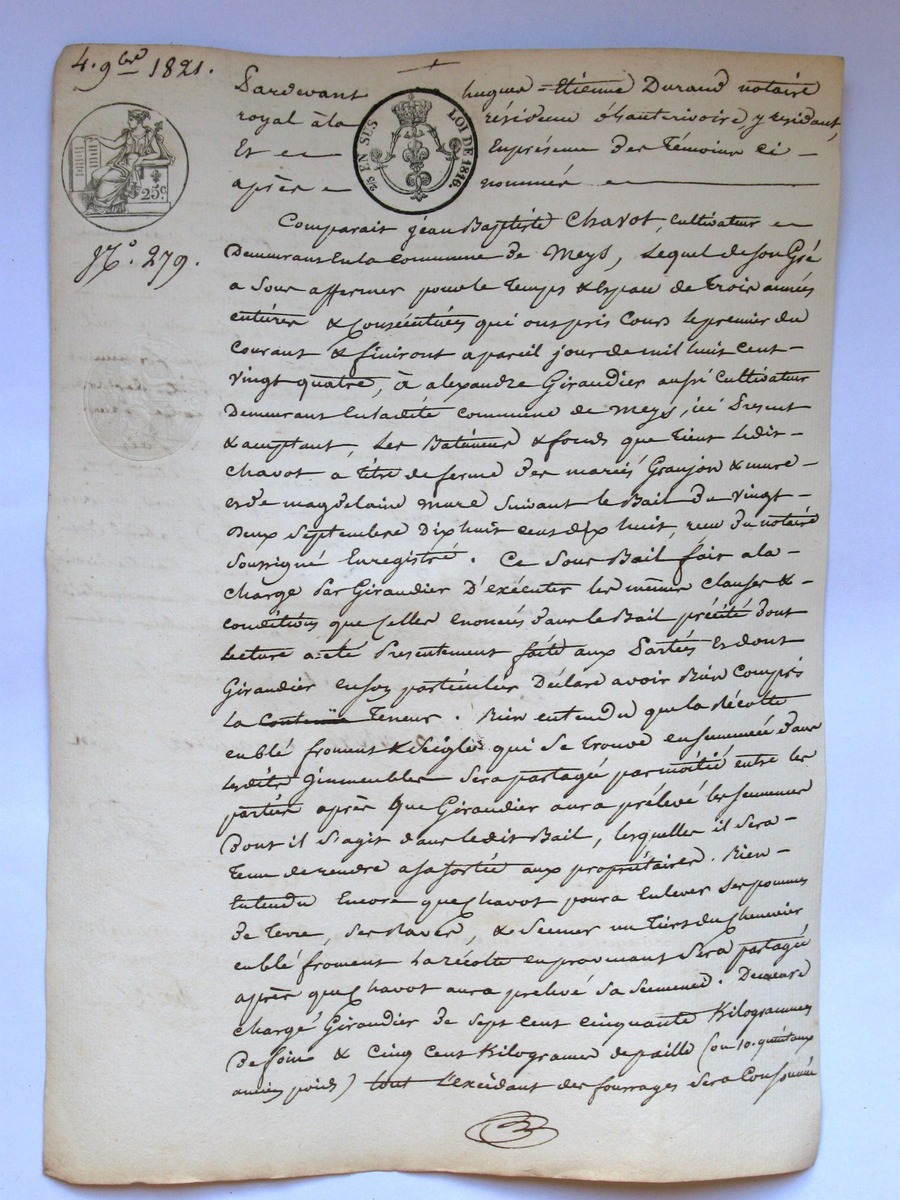 4. 9bre 1821.
Pardevant hugues = Etienne Durand notaire
royal à la résidence d'hauterivoire, y residant,
Et en Enpresence des Témoins ci-
après nommés
25 EN SUS LOI DE 1816.
25c.
N.° 279.
Comparait jean Baptiste Chavot, cultivateur
Demeurant Enla commune de Meys, Lequel de son Gré
a sous affermer pour le temps & Espace de trois années
entières & Consécutives qui ont pris cours le premier du
courant & finiront a pareil jour de mil huit cent-
vingt quatre, à alexandre Giraudier aussi cultivateur
Demeurant Enladite commune de Meys, ici Present
& acceptant, Les Batimens & fonds que Tient Ledit-
Chavot a titre de ferme des mariés Granjon & mure-
et de magdelaine mure suivant le Bail du vingt-
Deux septembre Dix huit cent dix huit, reçu du notaire
soussigné Enregistré. Ce sous Bail fait a la-
charge par Giraudier D'exécuter les mêmes clauses &-
conditions que Celles enoncées dans le Bail précité dont
Lecture a été Presentement faite aux Parties Et dont
Giraudier en son particulier Déclare avoir Bien Compris
La Contenue Teneur. Bien entendu que la récolte
en blé froment & Seigle qui se trouve ensemencée dans
Lesdits jmmeubles sera partagée par moitié entre les
parties après que Giraudier aura prélevé les semences
Dont il s'agit dans ledit Bail, lesquelles il sera-
tenu de rendre a sa sortie aux propriétaires. Bien-
Entendu Encore que Chavot poura Enlever ses pommes
de Terre, ses Raves, & semer un tiers du Chenevier
en blé froment la récolte en provenant sera partagée
après que Chavot aura prelevé sa semence. Demeure
chargé Giraudier de sept cent cinquante Kilogrammes
de foin & cinq cent Kilogrames de paille (ou 10. quintaux
ancien poids) tout L'excédant des fourrages sera Consommé